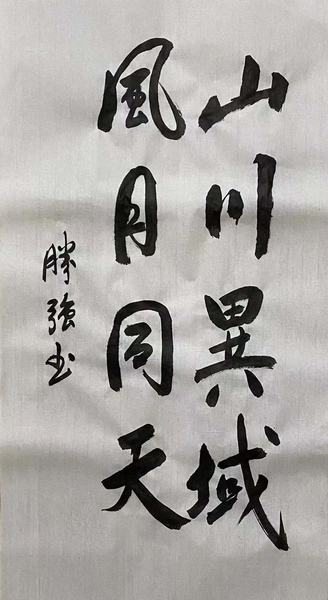 山川異域
風月同天
勝強书